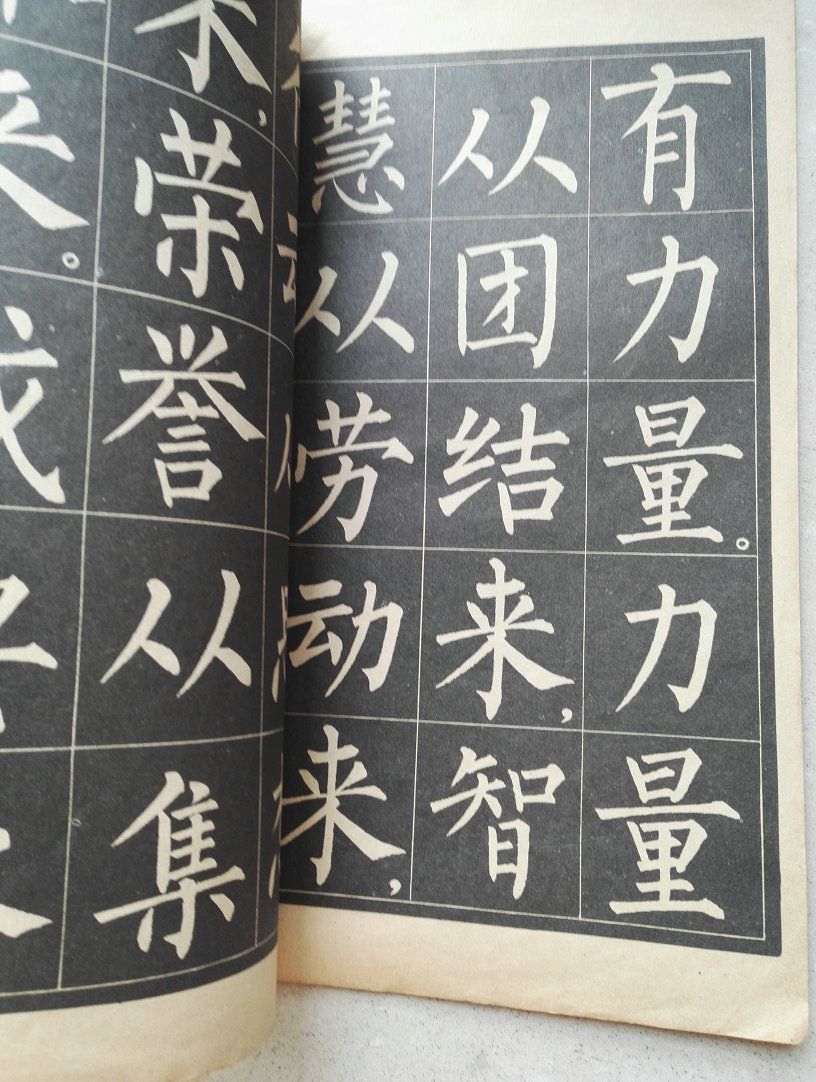 有力量。力量
从团结来，智
慧从劳动来，
荣誉从集